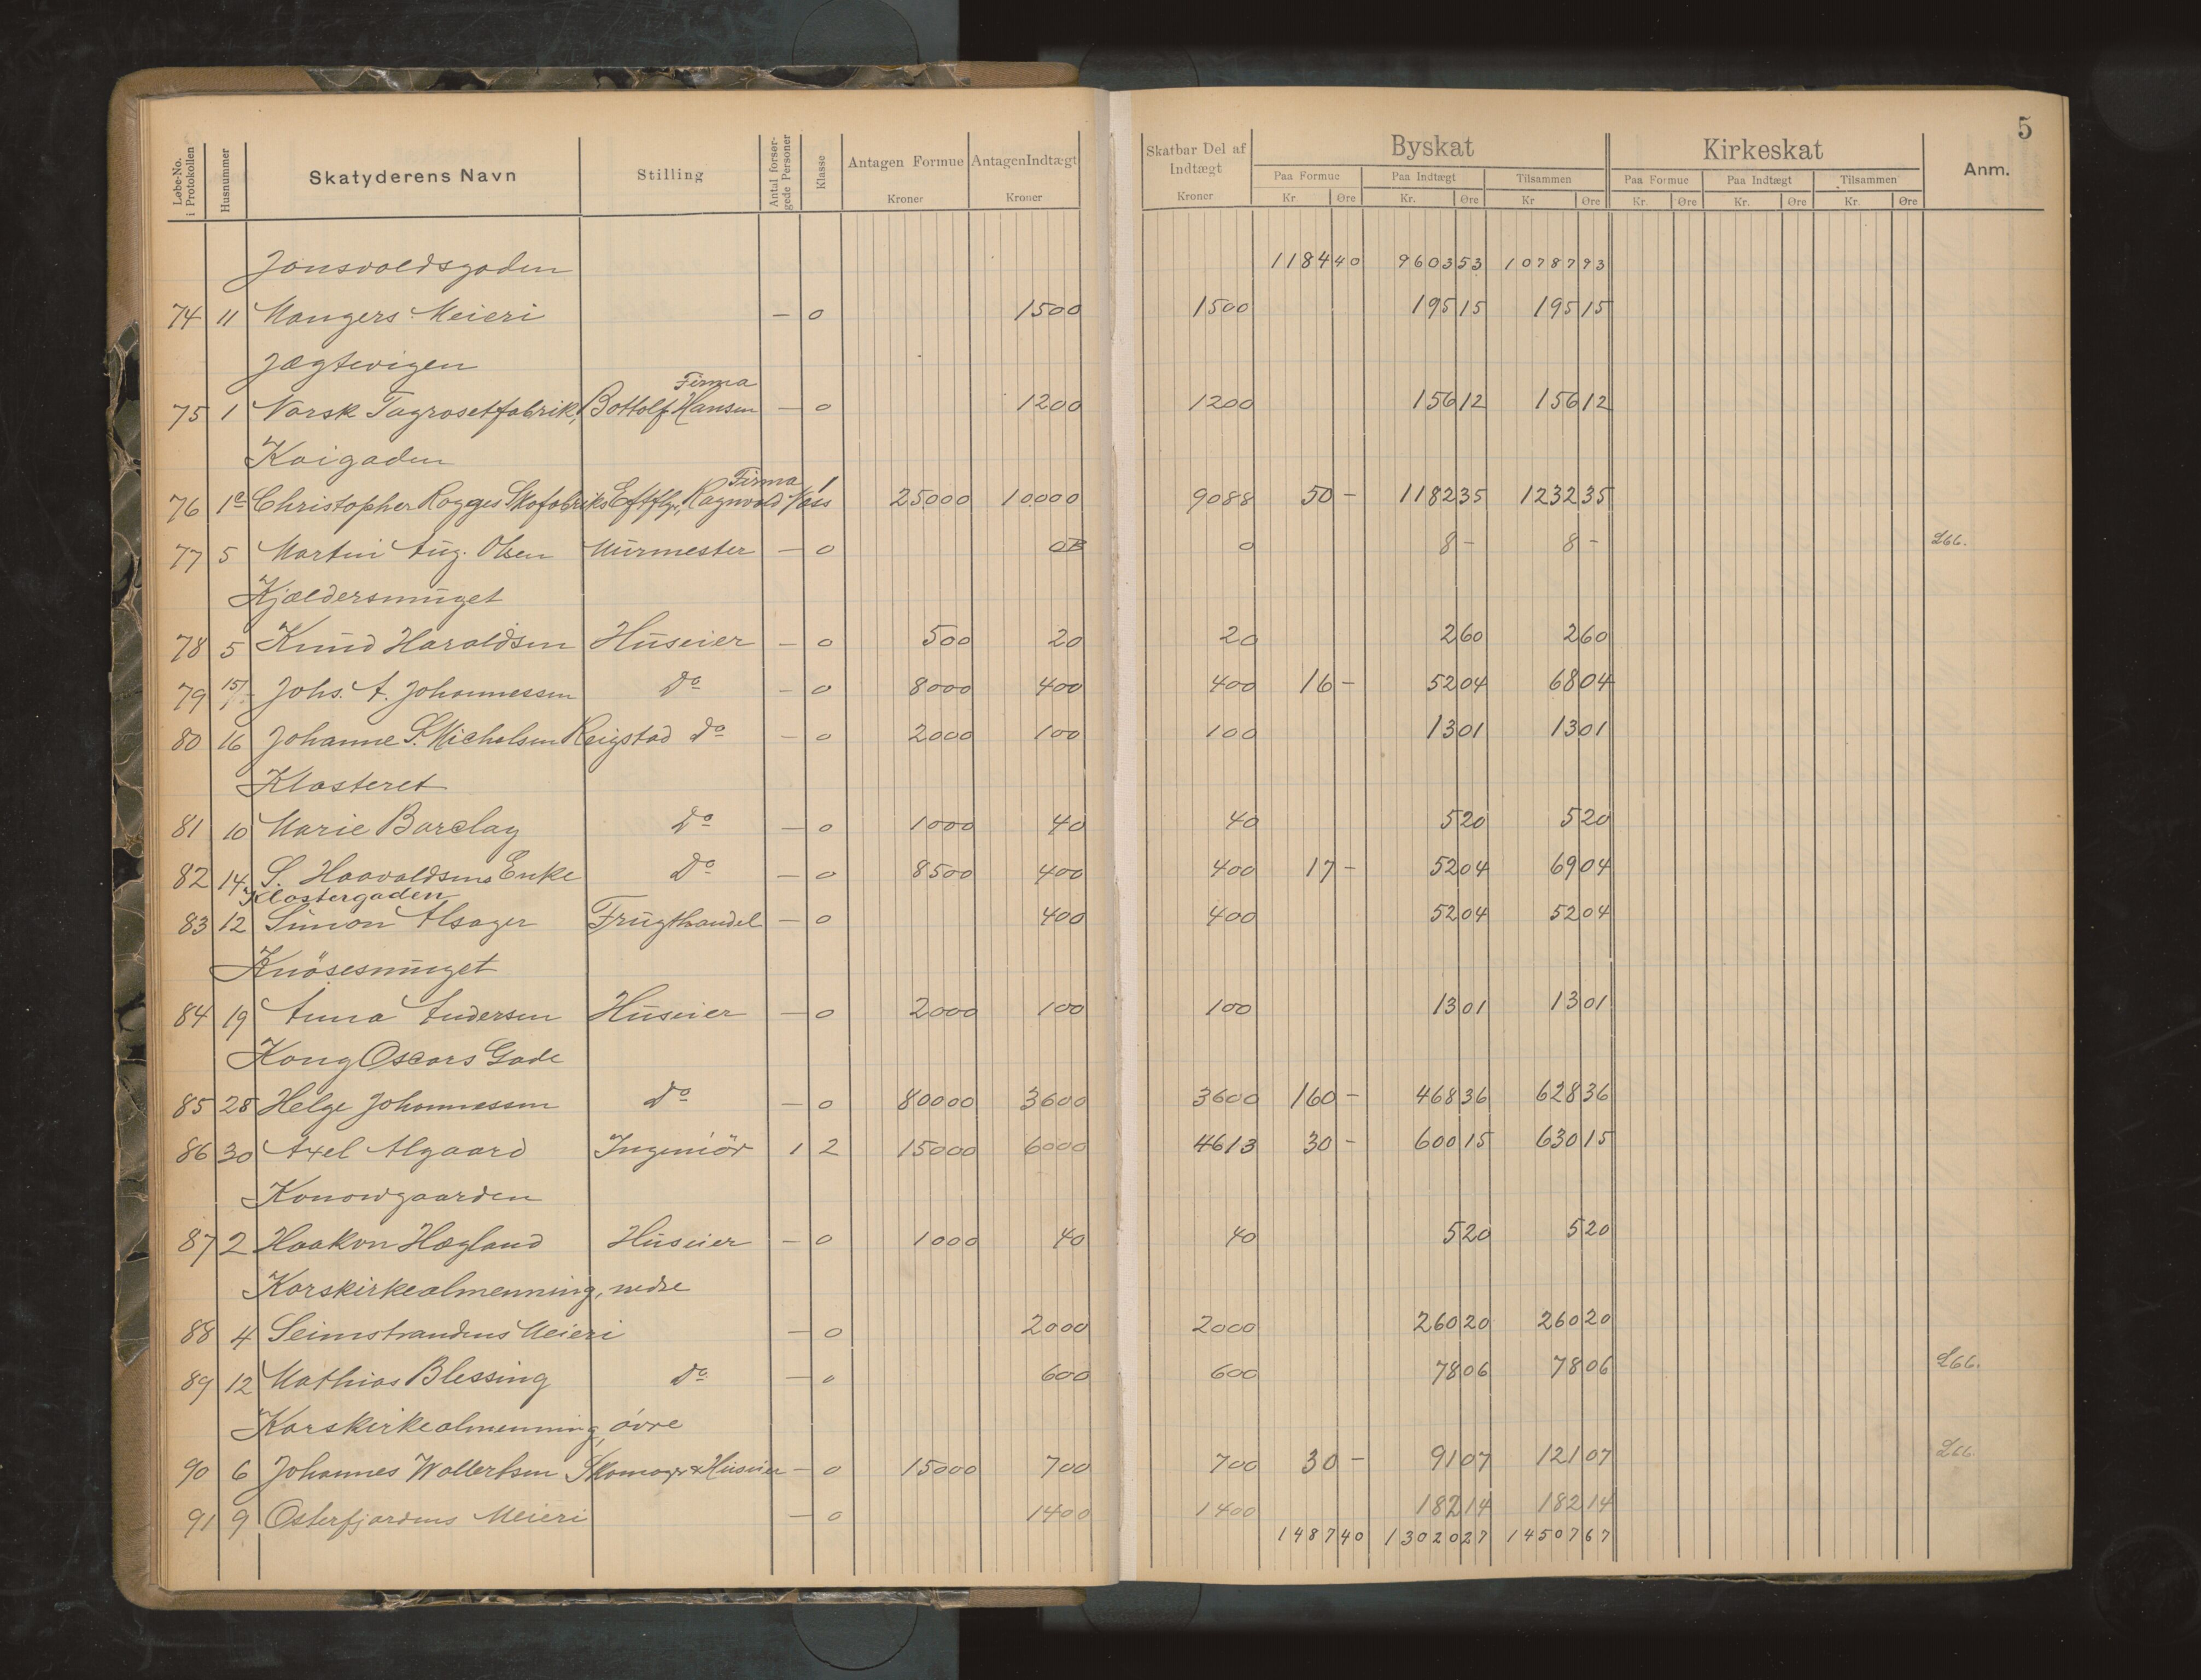 5
Løbe-No. i Protokollen Husnummer Skatyderens Navn Stilling Antal forsør-gede Personer Klasse Antagen Formue Kroner Antagen Indtægt Kroner Skatbar Del af Indtægt Kroner Byskat Paa Formue Kr. Øre Paa Indtægt Kr. Øre Tilsammen Kr Øre Kirkeskat Paa Formue Kr. Øre Paa Indtægt Kr. Øre Tilsammen Kr. Øre Anm.
Jonsvoldsgaden 1184 40 9603 53 10787 93
74 11 Mangers Meieri — 0 1500 1500 195 15 195 15
Jægtevigen
75 1 Norsk Tagrosetfabrik, Firma Bottolf Hansen — 0 1200 1200 156 12 156 12
Kaigaden
76 1a Christopher Rogges Skofabriks Eftflgr, Firma Ragnvald Vass 1 25000 10000 9088 50 — 1182 35 1232 35
77 5 Martin Aug. Olsen Murmester — 0 0 8 — 8 — L66.
Kjældersmuget
78 5 Knud Haraldsen Huseier — 0 500 20 20 2 60 2 60
79 15/ Johs. A. Johannessen Do — 0 8000 400 400 16 — 52 04 68 04
80 16 Johanne S. Michelsen Reigstad do — 0 2000 100 100 13 01 13 01
Klosteret
81 10 Marie Barclay Do — 0 1000 40 40 5 20 5 20
82 14 S. Haavaldsens Enke Do — 0 8500 400 400 17 — 52 04 69 04
Klostergaden
83 12 Simon Alsager Frugthandel — 0 400 400 52 04 52 04
Knösesmuget
84 19 Anna Andersen Huseier — 0 2000 100 100 13 01 13 01
Kong Oscars Gade
85 28 Helge Johannessen Do — 0 80000 3600 3600 160 — 468 36 628 36
86 30 Axel Algaard Ingeniör 1 2 15000 6000 4613 30 — 600 15 630 15
Konowgaarden
87 2 Haakon Hægland Huseier — 0 1000 40 40 5 20 5 20
Korskirkealmenning, nedre
88 4 Seimstrandens Meieri — 0 2000 2000 260 20 260 20
89 12 Mathias Blessing Do — 0 600 600 78 06 78 06 L66.
Korskirkealmenning, övre
90 6 Johannes Wallertsen Skomager & Huseier — 0 15000 700 700 30 — 91 07 121 07 L66.
91 9 Osterfjordens Meieri — 0 1400 1400 182 14 182 14
1487 40 13020 27 14507 67